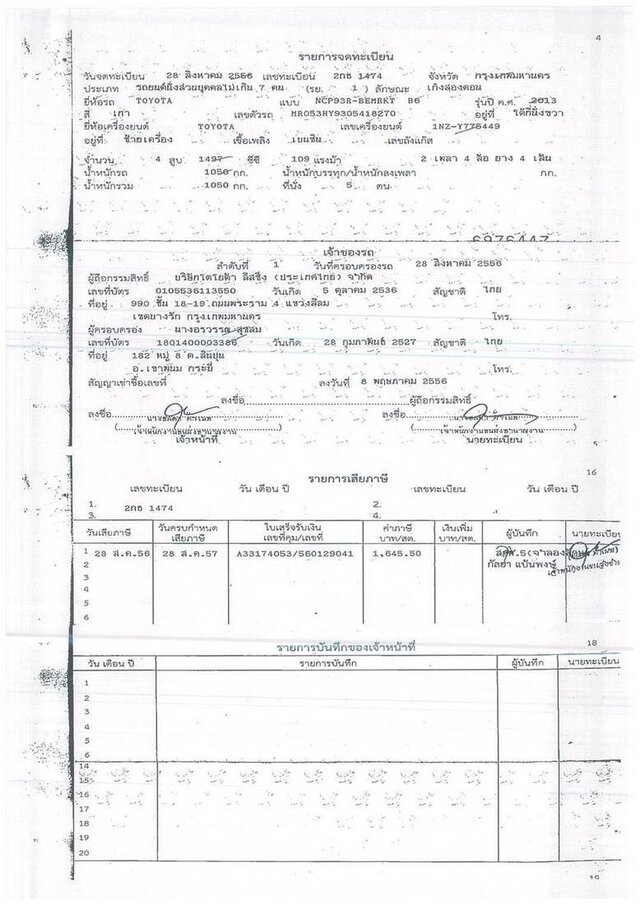 4
รายการจดทะเบียน
วันจดทะเบียน 28 สิงหาคม 2556 เลขทะเบียน 2กธ 1474 จังหวัด กรุงเทพมหานคร
ประเภท รถยนต์นั่งส่วนบุคคลไม่เกิน 7 คน (รย. 1 ) ลักษณะ เก๋งสองตอน
ยี่ห้อรถ TOYOTA แบบ NCP93R-BEMRKT B6 รุ่นปี ค.ศ. 2013
สี เทา เลขตัวรถ MR053HY9305418270 อยู่ที่ ใต้ที่นั่งขวา
ยี่ห้อเครื่องยนต์ TOYOTA เลขเครื่องยนต์ 1NZ-Y776449
อยู่ที่ ซ้ายเครื่อง เชื้อเพลิง เบนซิน เลขถังแก๊ส
จำนวน 4 สูบ 1497 ซีซี 109 แรงม้า 2 เพลา 4 ล้อ ยาง 4 เส้น
น้ำหนักรถ 1050 กก. น้ำหนักบรรทุก/น้ำหนักลงเพลา กก.
น้ำหนักรวม 1050 กก. ที่นั่ง 5 คน
6976447
เจ้าของรถ
ลำดับที่ 1 วันที่ครอบครองรถ 28 สิงหาคม 2556
ผู้ถือกรรมสิทธิ์ บริษัทโตโยต้า ลีสซิ่ง (ประเทศไทย) จำกัด
เลขที่บัตร 0105536113550 วันเกิด 5 ตุลาคม 2536 สัญชาติ ไทย
ที่อยู่ 990 ชั้น 18-19 ถนนพระราม 4 แขวงสีลม
เขตบางรัก กรุงเทพมหานคร โทร.
ผู้ครอบครอง นางอรวรรณ สุขสม
เลขที่บัตร 1801400003386 วันเกิด 28 กุมภาพันธ์ 2527 สัญชาติ ไทย
ที่อยู่ 182 หมู่ 8 ต.สินปุน
อ.เขาพนม กระบี่ โทร.
สัญญาเช่าซื้อเลขที่ ลงวันที่ 8 พฤษภาคม 2556
ลงชื่อ ผู้ถือกรรมสิทธิ์
ลงชื่อ ลงชื่อ
เจ้าหน้าที่ นายทะเบียน
5
16
รายการเสียภาษี
เลขทะเบียน วัน เดือน ปี เลขทะเบียน วัน เดือน ปี
1. 2กธ 1474 2.
3. 4.
วันเสียภาษี วันครบกำหนดเสียภาษี ใบเสร็จรับเงิน เลขที่คุม/เลขที่ ค่าภาษี บาท/สต. เงินเพิ่ม บาท/สต. ผู้บันทึก นายทะเบียน
1 28 ส.ค.56 28 ส.ค.57 A33174053/560129041 1,645.50
2 กัลยา แป้นพงษ์
3
4
5
6
18
รายการบันทึกของเจ้าหน้าที่
วัน เดือน ปี รายการบันทึก ผู้บันทึก นายทะเบียน
1
2
3
4
5
6
14
15
16
17
18
19
20
19